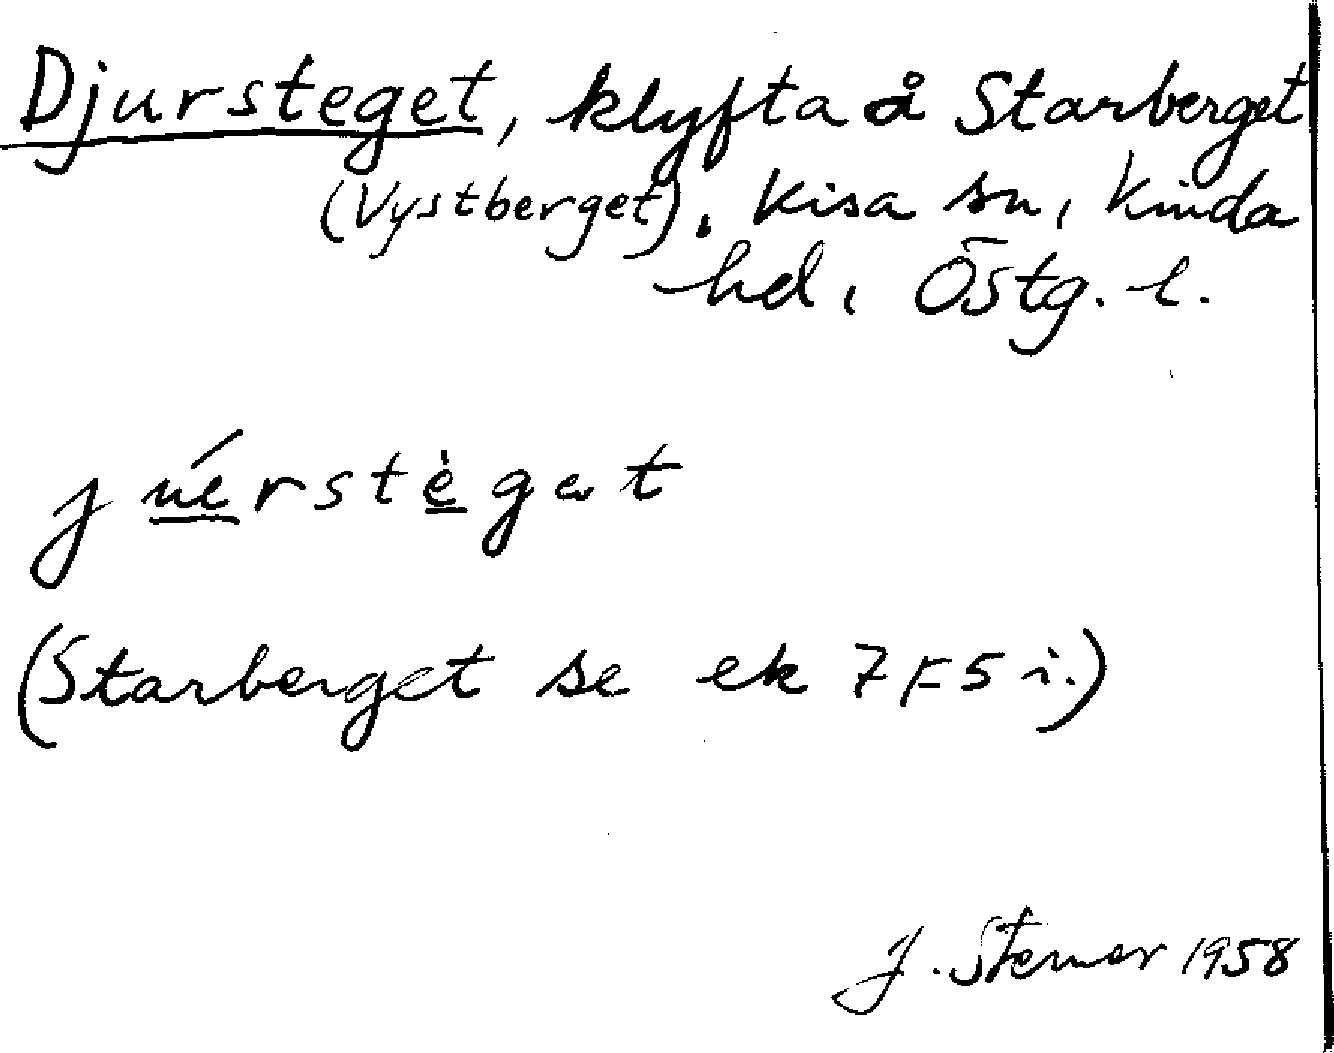 Djursteget, klyfta å Starberget
(Vystberget). Kisa sn, Kinda
hd, Östg. l.
júérstègat
(Starberget se ek 7F5i.)
J. Sterner 1958